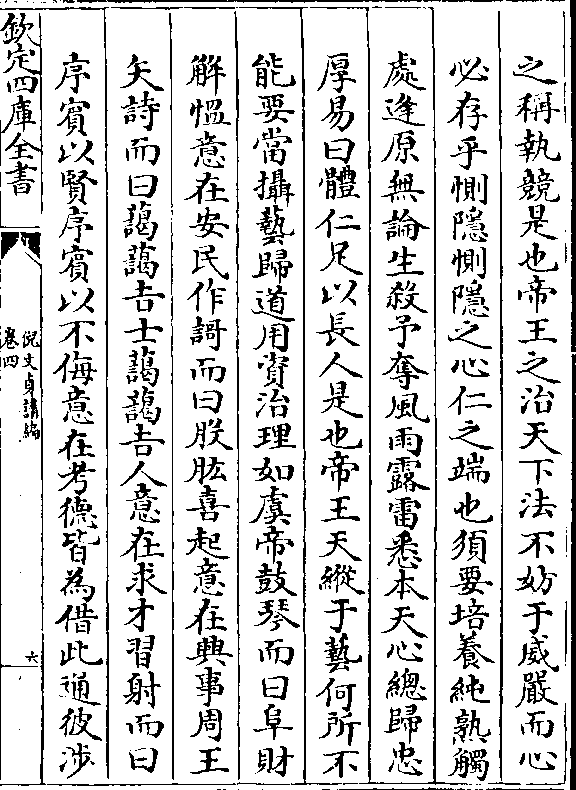 之稱執競是也帝王之治天下法不妨于威嚴而心
必存乎惻隱惻隱之心仁之端也須要培養純熟觸
處逢原無論生殺予奪風雨露雷悉本天心總歸忠
厚易曰體仁足以長人是也帝王天縱于藝何所不
能要當攝藝歸道用資治理如虞帝鼓琴而曰阜財
解慍意在安民作謌而曰股肱喜起意在興事周王
矢詩而曰藹藹吉士藹藹吉人意在求才習射而曰
序賓以賢序賓以不侮意在考德皆為借此通彼涉
欽定四庫全書
倪文貞講編
卷四
六